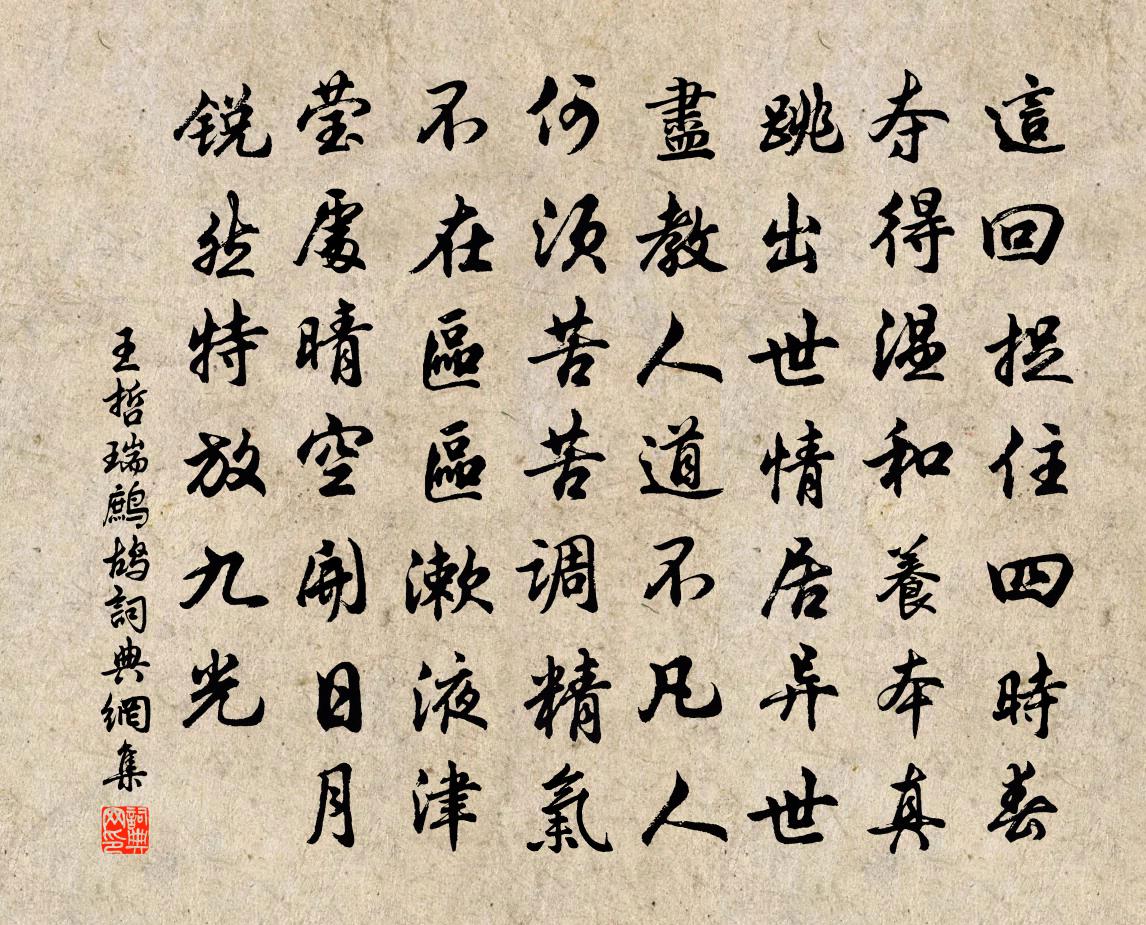 這回捉住四時春
夺得温和養本真
跳出世情居异世
盡教人道不凡人
何須苦苦調精氣
不在區區漱液津
莹處晴空開日月
锐然特放九光
王哲瑞鷓鴣詞典網集
詞典网印